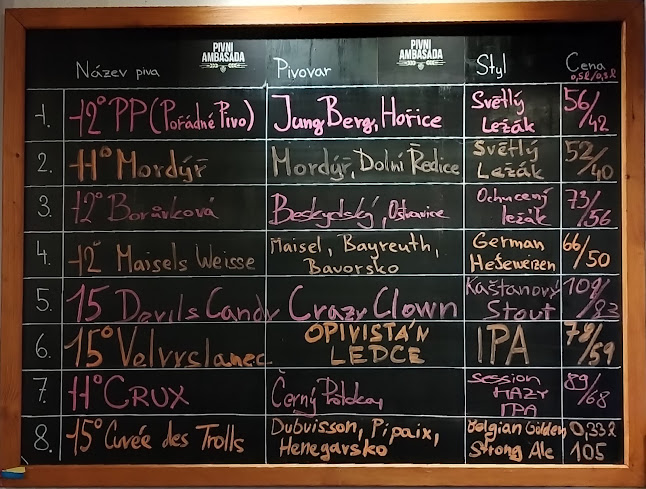 PIVNI AMBASADA
PIVNI AMBASADA
Název piva Pivovar Styl Cena 0,5l/0,3l
1. 12° PP (Pořádné Pivo) JungBerg, Hořice Světlý Ležák 56/42
2. 11° Mordýř Mordýř, Dolní Ředice Světlý Ležák 52/40
3. 12° Borůvková Beskydský, Ostravice Ochucený ležák 73/56
4. 12° Maisels Weisse Maisel, Bayreuth, Bavorsko German Hefeweizen 66/50
5. 15 Devils Candy Crazy Clown Kaštanový Stout 109/83
6. 15° Velvyslanec OPIVISTÁN LEDCE IPA 78/59
7. 11° CRUX Černý Potoka, session HAZY IPA 89/68
8. 15° Cuvée des Trolls Dubuisson, Pipaix, Henegavsko Belgian Golden Strong Ale 0,33l 105